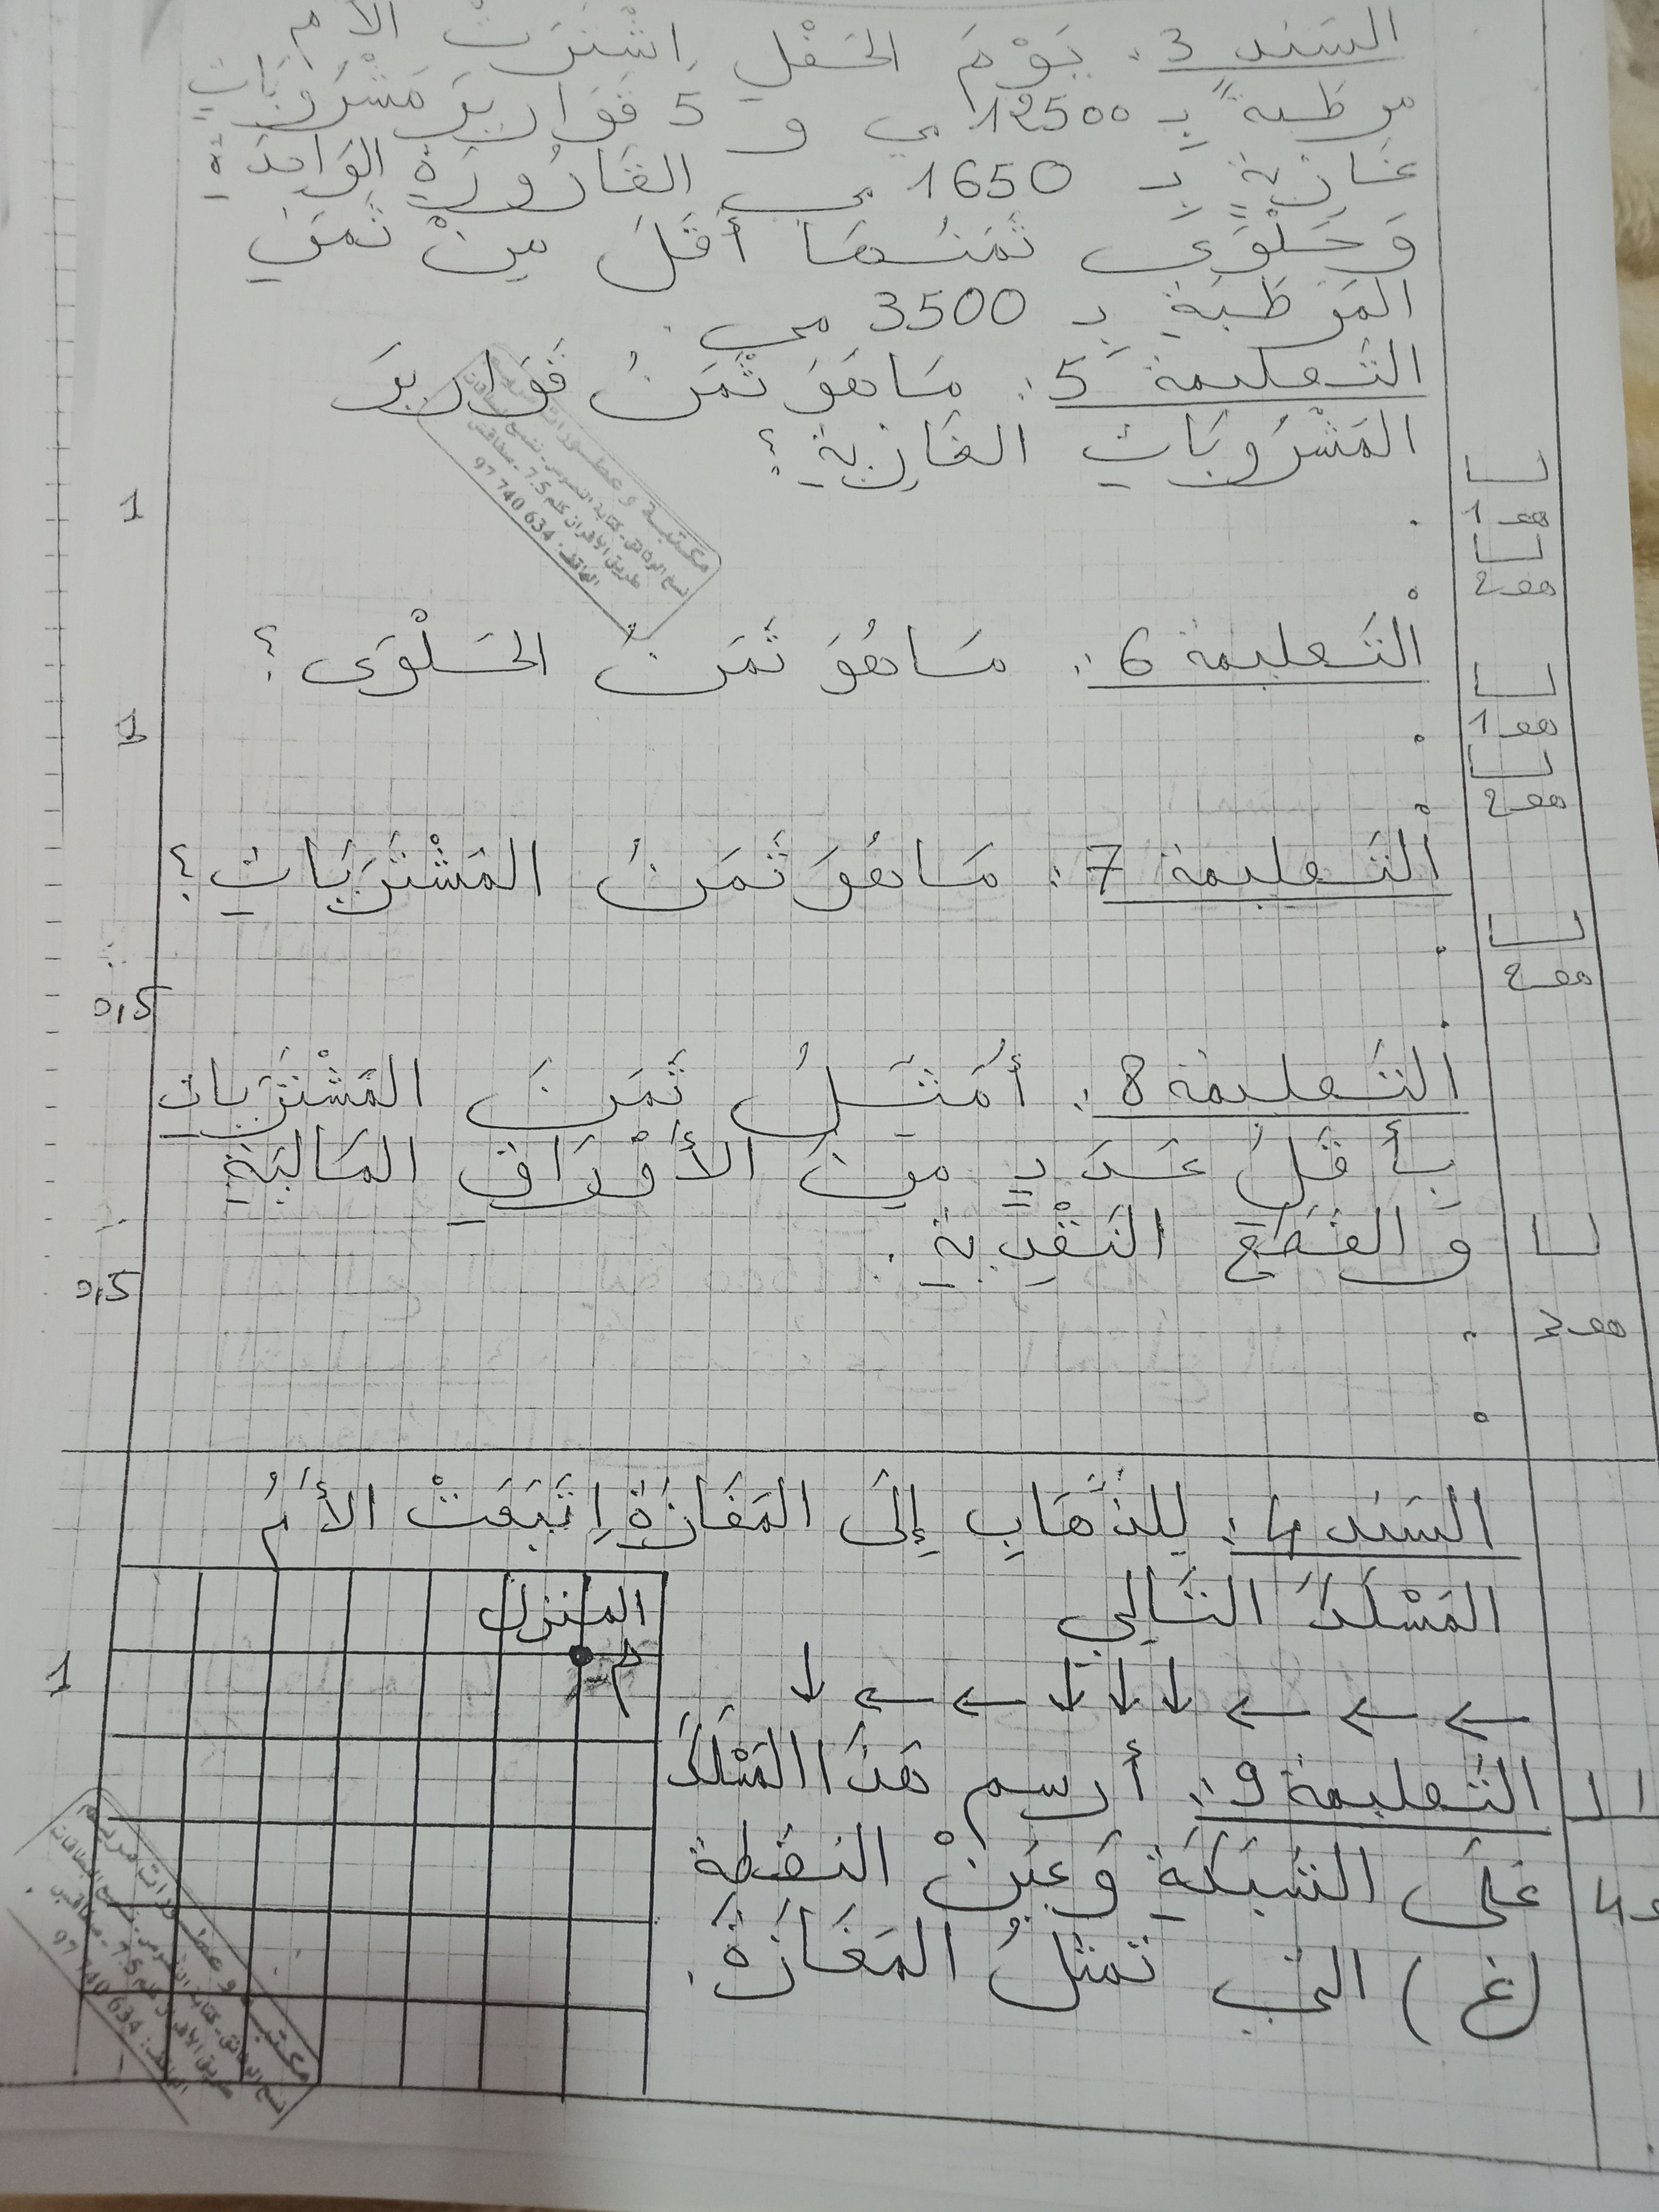 السَند 3: يَوْمَ الحَفْلِ اِشْتَرَتْ الأم
مرطبةً بِـ 12500 مي و 5 قَوَارِيرَ مَشْرُوبَاتٍ
غَازِيَةٍ بِـ 1650 مي القَارُورَةُ الوَاحِدَةُ
وَحَلْوَى ثَمَنُهَا أَقَلَ مِنْ ثَمَنِ
المَرْطَبَةِ بِـ 3500 مي.
التَعليمة 5: مَاهُوَ ثَمَنُ قَوَارِيرَ
المَشْرُوبَاتِ الغَازِيَةِ؟
1
مع1
مع2
التَعليمة 6: مَاهُوَ ثَمَنُ الحَلْوَى؟
1
مع1
مع2
التَعليمة 7: مَاهُوَ ثَمَنُ المُشْتَرَيَاتِ؟
0,5
مع2
التَعليمة 8: أُمَثِّلُ ثَمَنَ المُشْتَرَيَاتِ
بِأَقَلِ عَدَدٍ مِنَ الأَوْرَاقِ المَالِيَةِ
وَ القِطَعِ النَقْدِيَةِ.
0,5
مع2
السَند 4: لِلذَّهَابِ إِلَى المَغَازَةِ اِتَّبَعَتْ الأُمُ
المَسْلَكَ التَالِي
المنزل
م
← ← ← ↓ ↓ ↓ ← ← ↓
1
التَعليمة 9: أرسم هَذَا المَسْلَكَ
عَلَى الشَبَكَةِ وَعَيِّنْ النُقْطَة
(غ) التِي تُمَثِّلُ المَغَازَةَ.
مكتبة و عطورات مريم
نسخ الوثائق - كتابة النصوص - نسخ البطاقات
طريق الأفران كلم 7.5 - صفاقس
الهاتف: 97 740 634